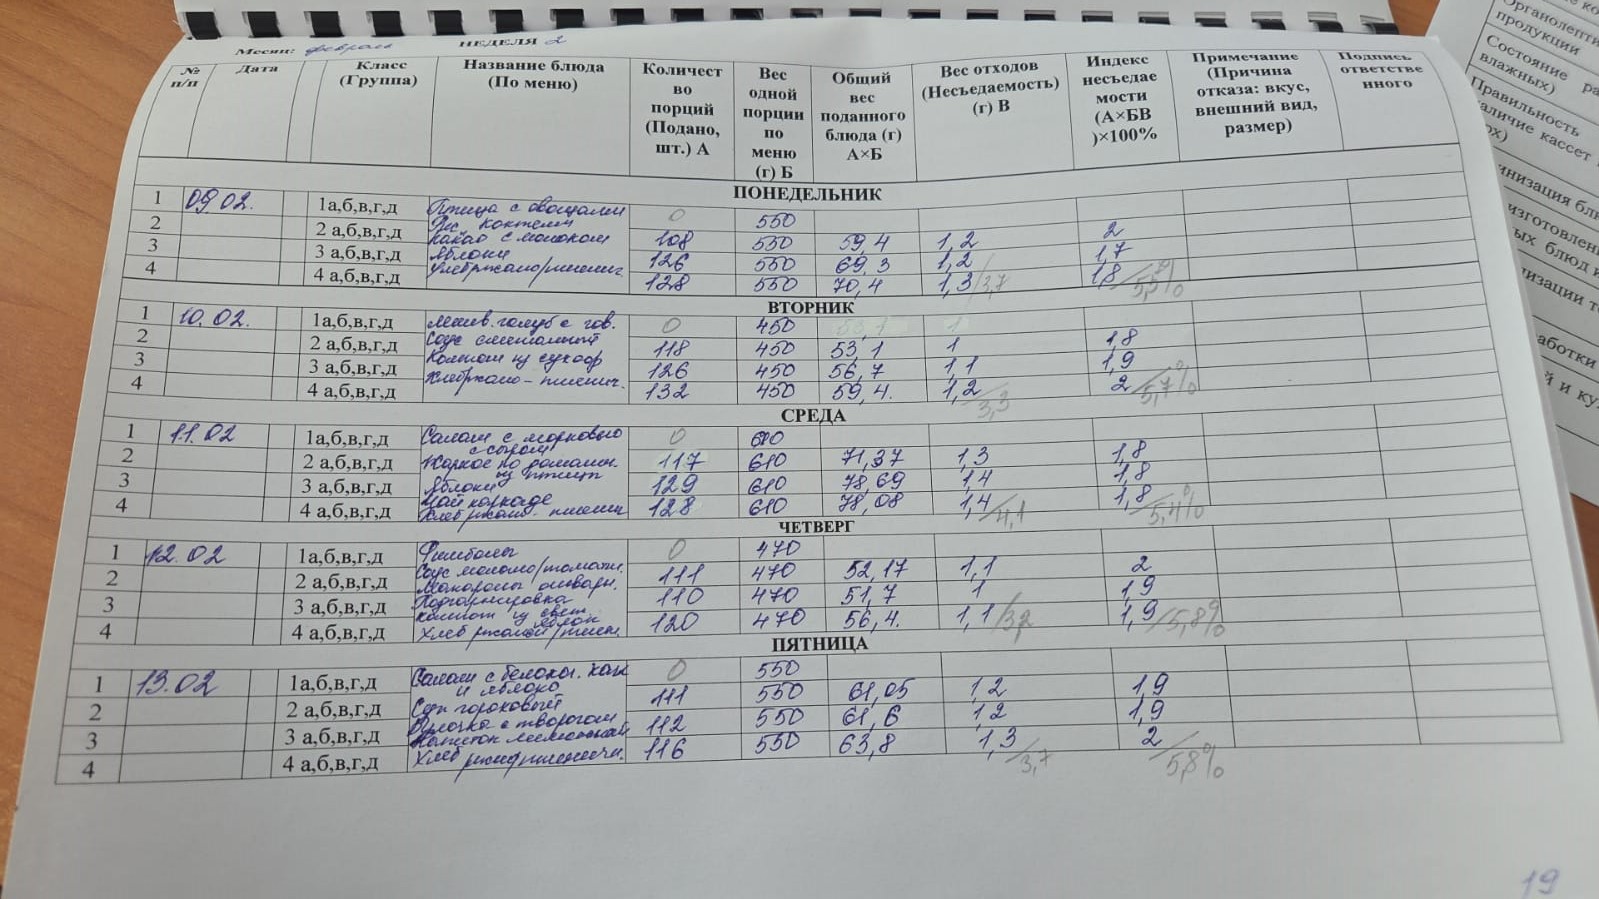 Месяц: февраль НЕДЕЛЯ 2
№ п/п Дата Класс (Группа) Название блюда (По меню) Количест во порций (Подано, шт.) А Вес одной порции по меню (г) Б Общий вес поданного блюда (г) А×Б Вес отходов (Несъедаемость) (г) В Индекс несъедае мости (А×БВ )×100% Примечание (Причина отказа: вкус, внешний вид, размер) Подпись ответстве нного
ПОНЕДЕЛЬНИК
1 09.02. 1а,б,в,г,д Птица с овощами 0 550
2 2 а,б,в,г,д Рис 108 550 59,4 1,2 2
3 3 а,б,в,г,д Какао с молоком 126 550 69,3 1,2 1,7
Яблоки
4 4 а,б,в,г,д Хлебржано/пшенич. 128 550 70,4 1,3/3,7 1,8/5,5%
ВТОРНИК
1 10.02. 1а,б,в,г,д Ленив. голуб с гов. 0 450
2 2 а,б,в,г,д Соус сметанный 118 450 53,1 1 1,8
3 3 а,б,в,г,д Компот из сухофр 126 450 56,7 1,1 1,9
4 4 а,б,в,г,д Хлебржано-пшенич. 132 450 59,4. 1,2/3,3 2/5,7%
СРЕДА
1 11.02 1а,б,в,г,д Салат с морковью с сыром 0 610
2 2 а,б,в,г,д Жаркое по домашн. из птицы 117 610 71,37 1,3 1,8
3 3 а,б,в,г,д Яблоки 129 610 78,69 1,4 1,8
Чай каркаде
4 4 а,б,в,г,д Хлеб ржан. пшенич 128 610 78,08 1,4/4,1 1,8/5,4%
ЧЕТВЕРГ
1 12.02 1а,б,в,г,д Фишболы 0 470
2 2 а,б,в,г,д Соус молочно/томатн. 111 470 52,17 1,1 2
Макароны отварн.
3 3 а,б,в,г,д Подгарнировка 110 470 51,7 1 1,9
Компот из свеж яблок
4 4 а,б,в,г,д Хлеб ржаной/пшен. 120 470 56,4. 1,1/3,2 1,9/5,8%
ПЯТНИЦА
1 13.02 1а,б,в,г,д Салат с белокач. кап и яблоко 0 550
2 2 а,б,в,г,д Суп гороховый 111 550 61,05 1,2 1,9
3 3 а,б,в,г,д Булочка с творогом 112 550 61,6 1,2 1,9
Напиток лимонный
4 4 а,б,в,г,д Хлеб 116 550 63,8 1,3/3,7 2/5,8%
19
Органолепти
продукции
Состояние
влажных)
Правильность